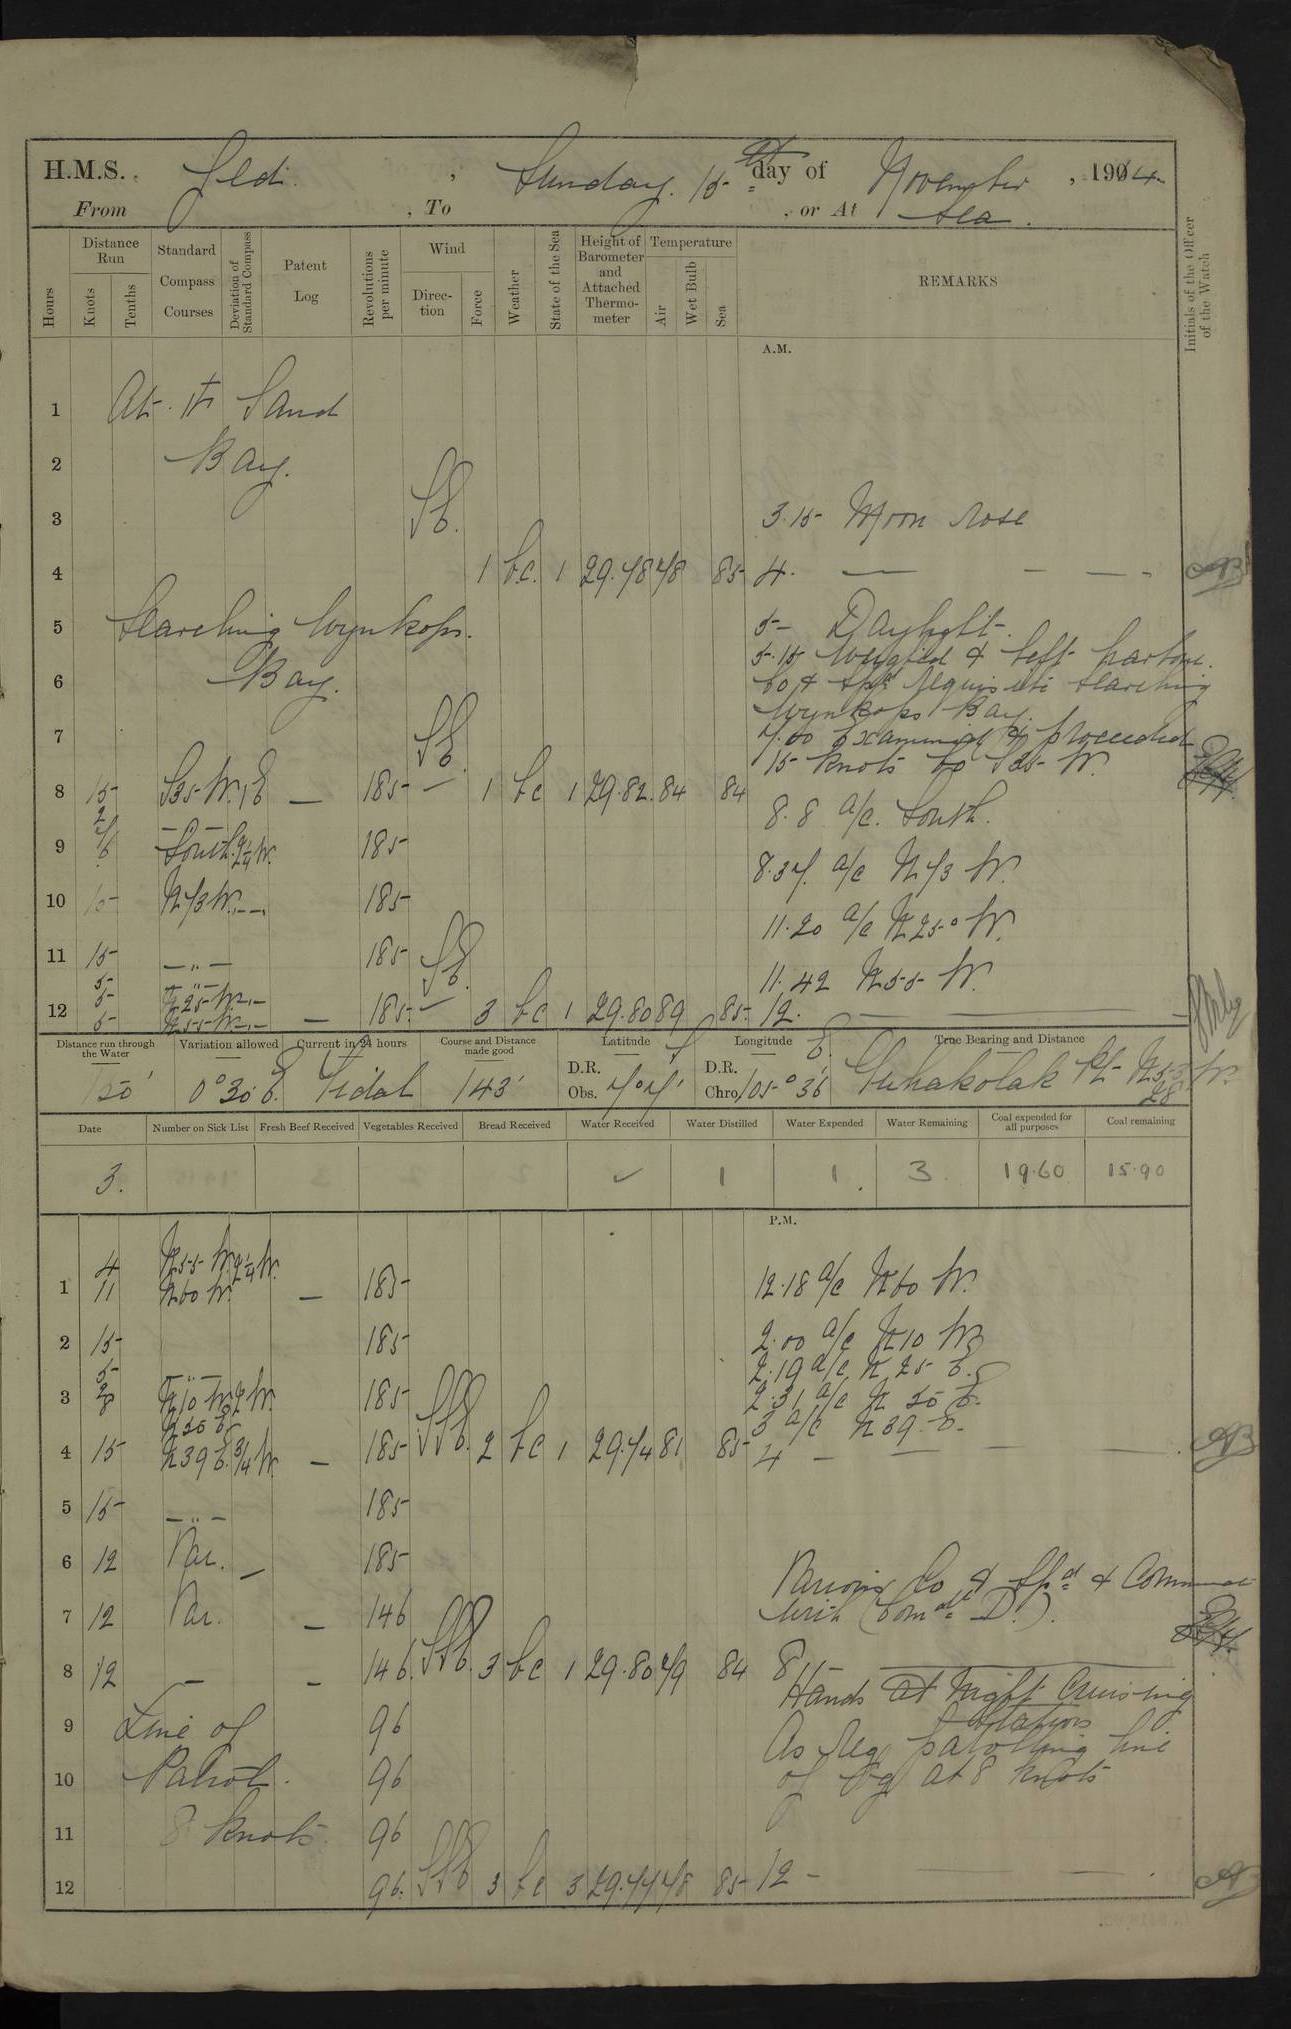 H.M.S. Jedi , Sunday. 15th day of November , 1914
From , To , or At Sea.
Hours
Distance Run
Knots
Tenths
Standard Compass Courses
Deviation of Standard Compass
Patent Log
Revolutions per minute
Wind
Direction
Force
Weather
State of the Sea
Height of Barometer and Attached Thermometer
Temperature
Air
Wet Bulb
Sea
REMARKS
Initials of the Officer of the Watch
A.M.
1 At Sand
2 Bay.
3 SE. 3.15 Moon rose
4 1 b.c. 1 29.78 78 85 4. — — —
5 Searching Wynkops. 5 — Daylight.
5.15 Weighed & left harbour.
6 Bay. Co & Spd requisite searching
Wynkops Bay.
7 SE. 7.00 Examined & proceeded
15 knots to S35 W.
8 15 S35 W. 1 E — 185 — 1 bc 1 29.82 84 84
8.8 a/c. South.
2 — —
9 7/6 South. 2¼ W. 185
8.37. a/c N73 W.
10 15 N73 W. — 185
11.20 a/c N25° W.
11 15 — " — 185 SE.
11.42 N55 W.
5 — " —
12 5 N25 W. — — 185. — 3 bc 1 29.80 89 85. 12. —
5 N55 W. —
Distance run through the Water
Variation allowed
Current in 24 hours
Course and Distance made good
Latitude S
Longitude E.
True Bearing and Distance
150' 0°30' E. Tidal 143' D.R. Obs. 7°7' D.R. Chro 105° 36' Guhakolak Pt. N55 W. 28'
Date
Number on Sick List
Fresh Beef Received
Vegetables Received
Bread Received
Water Received
Water Distilled
Water Expended
Water Remaining
Coal expended for all purposes
Coal remaining
3. 1 1. 3 19.60 15.90
P.M.
4 N55 W. 2¼ W.
1 11 N60 W. — 185 12.18 a/c N60 W.
2 15 185 2.00 a/c N10 W
5 — " — 2.19 a/c N 25 E.
3 2 8 N10 W. 2 W. 185 2.31 a/c N 50 E.
N50 E. SSE. 3 a/c N39 E.
4 15 N39 E. ¾ W. — 185 2 bc 1 29.74 81 85 4 — — — —
5 15 — " — 185
6 12 Var. — 185
Various Co & Spd & Communicate
7 12 Var. — 146 with (Comdt D.).
8 12 — — 146. SSE. 3 bc 1 29.80 79 84 8 —
Hands at Night Cruising
Stations
9 Line of 96 As Req. patrolling line
10 Patrol. 96 of at 8 knots
11 8 knots. 96
12 96. SSE 3 bc 3 29.77 78 85 12 — — — .